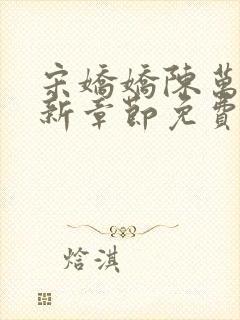 宋嬌嬌陳萬
新章節免費
焓淇